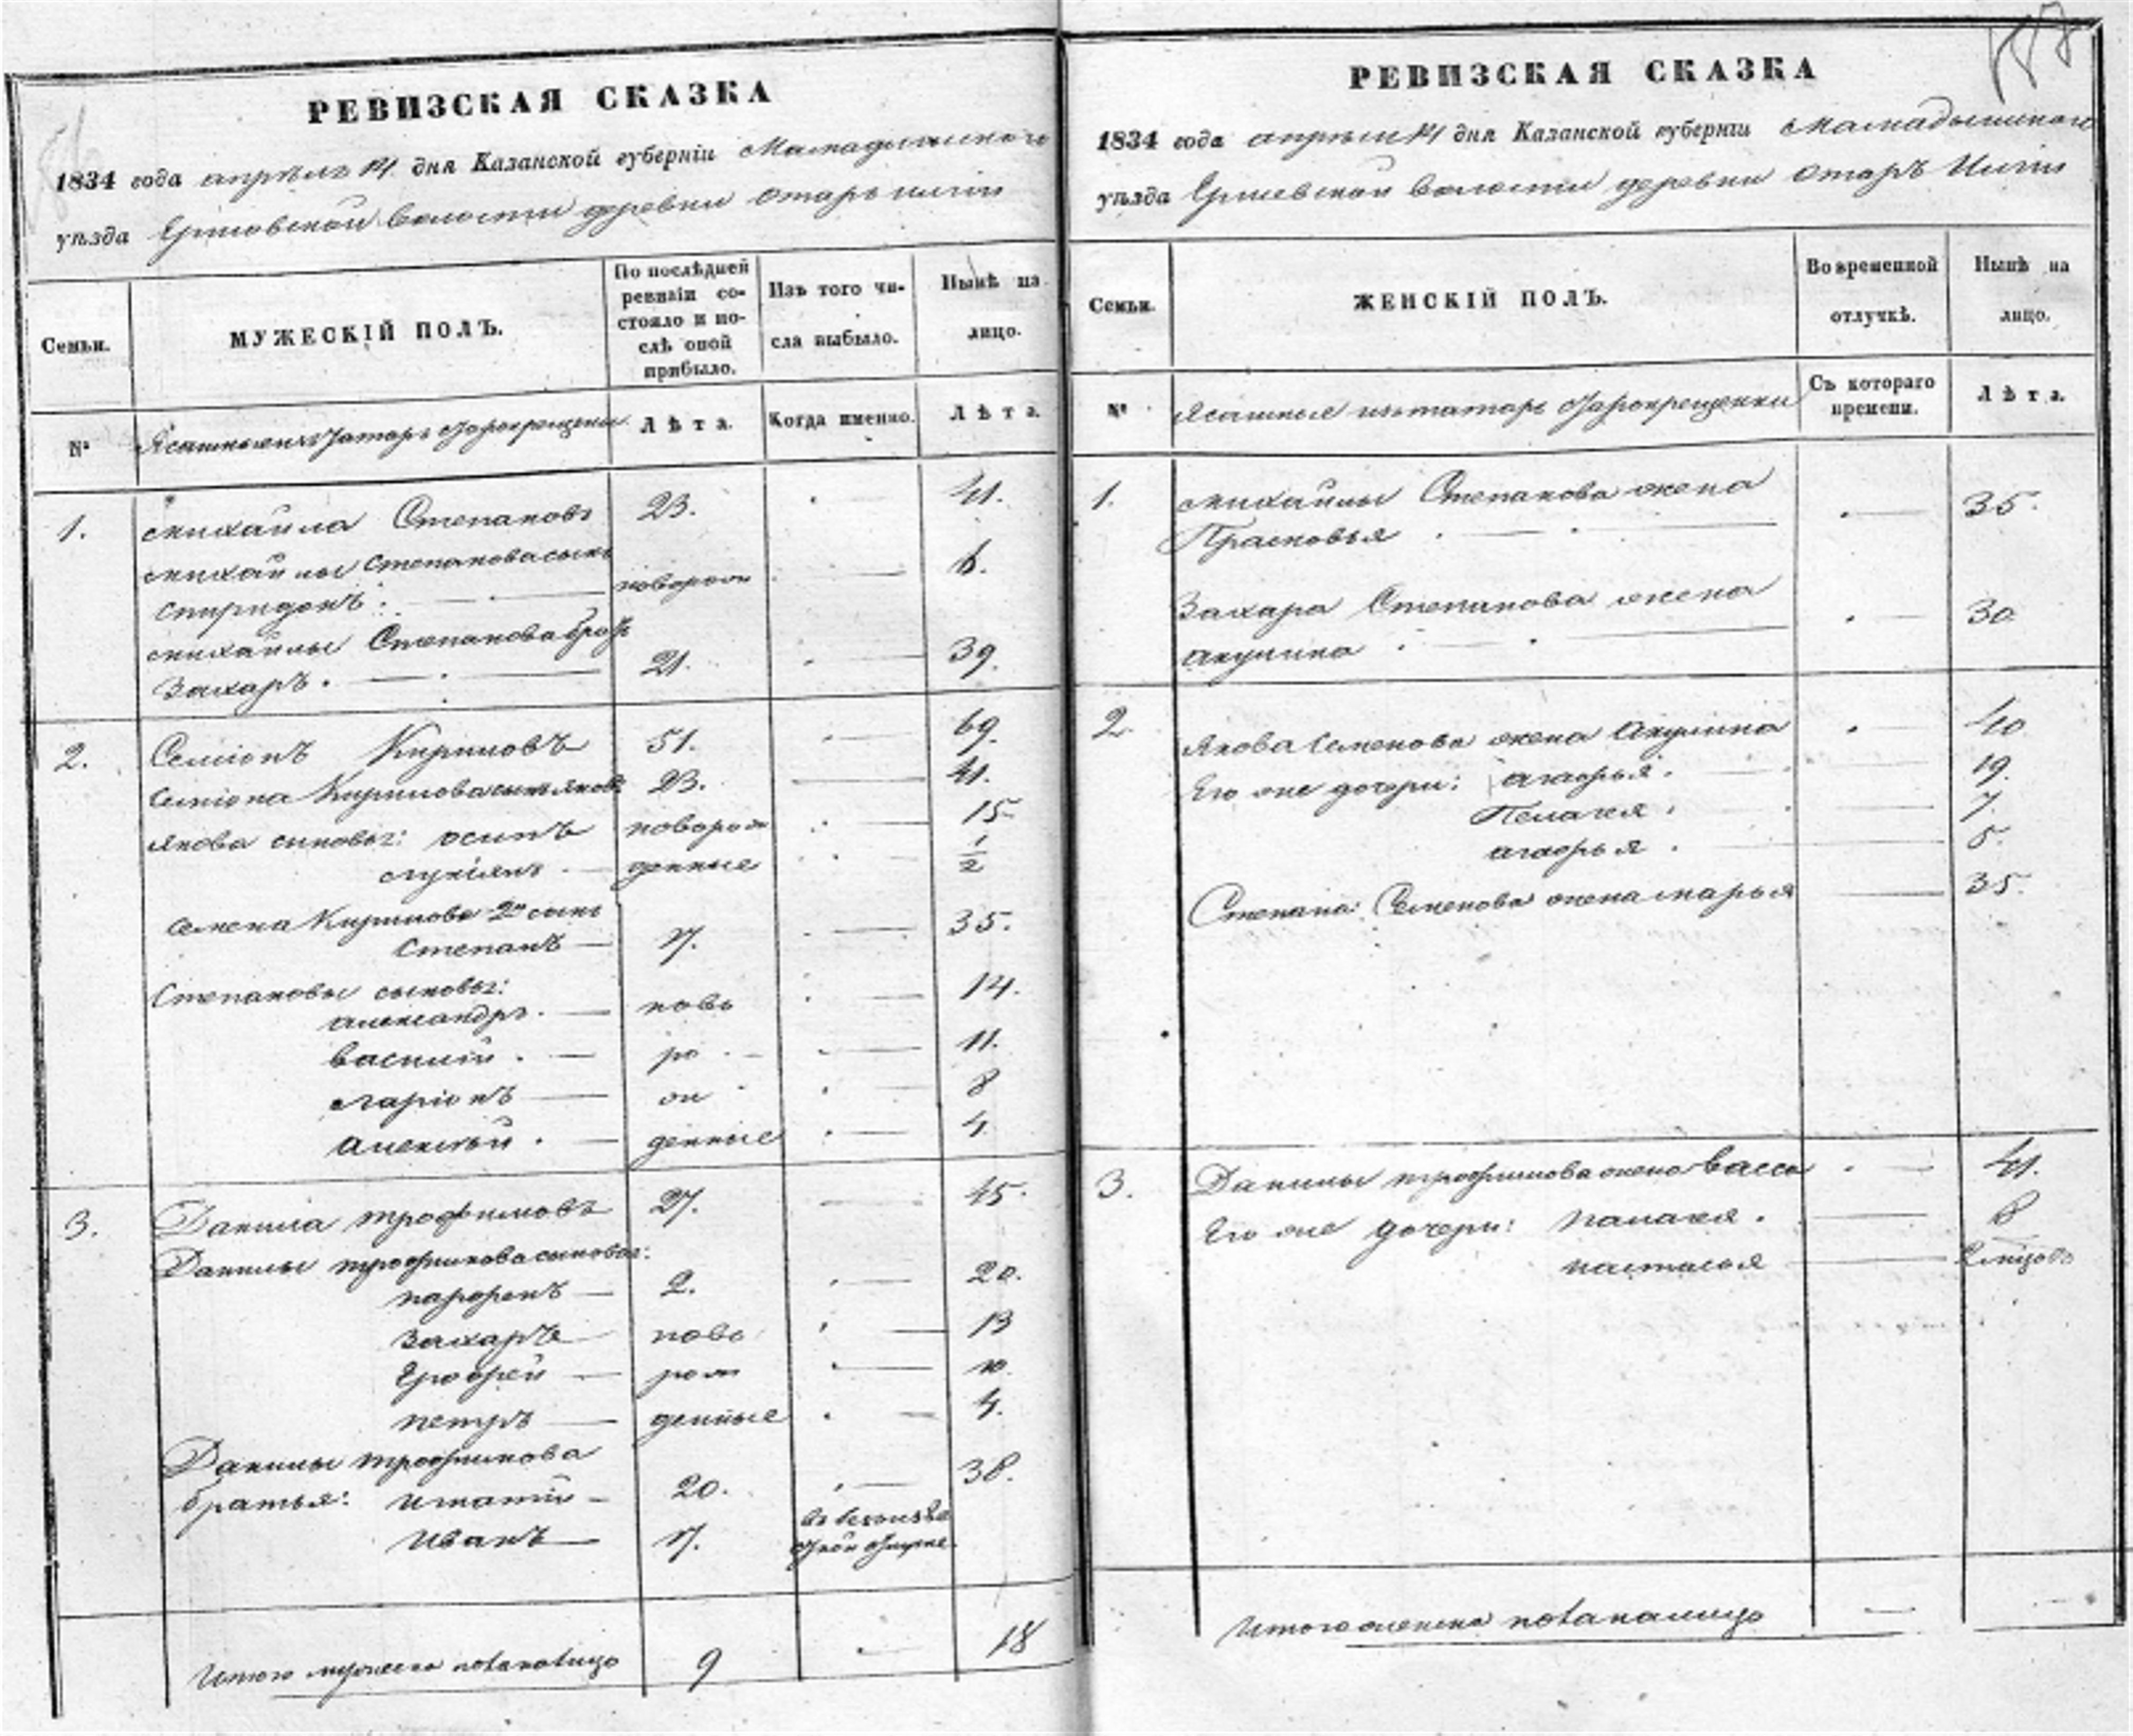 РЕВИЗСКАЯ СКАЗКА
1834 года апреля 14 дня Казанской губерніи Мамадышскаго
уѣзда волости деревни Отаръ
Семьи.
МУЖЕСКІЙ ПОЛЪ.
По послѣдней
ревизіи со-
стояло и по-
слѣ оной
прибыло.
Изъ того чи-
сла выбыло.
Нынѣ на
лицо.
№
Ясашные изъ татаръ старокрещены
Лѣта.
Когда именно.
Лѣта.
1. Михайла Степановъ 23. 41.
Михайлы Степанова сынъ
Спиридонъ. новорож 6.
Михайлы Степанова братъ
Захаръ. 21. 39.
2. Семіонъ Кириловъ 51. 69.
Семіона Кирилова сынъ Яковъ 23. 41.
Якова сыновья: Осипъ новорож 15
Лукіянъ денные 1/2
Семена Кирилова 2й сынъ
Степанъ 17. 35.
Степановы сыновья:
Александръ. ново 14.
Василій. ро 11.
Ларіонъ 8
Алексѣй. денные 4
3. Данила Трофимовъ 27. 45.
Данилы Трофимова сыновья:
Парфенъ 2. 20.
Захаръ ново 13
Ерофей рож 10.
Петръ денные 4.
Данилы Трофимова
братья: Игнатій 20. 38.
Иванъ 17.
Итого мужеска пола налицо 9 18
РЕВИЗСКАЯ СКАЗКА
1834 года апреля 14 дня Казанской губерніи Мамадышскаго
уѣзда волости деревни Отаръ
Семьи.
ЖЕНСКІЙ ПОЛЪ.
Во временной
отлучкѣ.
Нынѣ на
лицо.
№
Ясашные изъ татаръ старокрещенки
Съ котораго
времени.
Лѣта.
1. Михайлы Степанова жена
Прасковья 35.
Захара Степанова жена
Акулина 30
2. Якова Семенова жена Акулина 40
Его же дочери: Агафья. 19.
Пелагея. 7.
Агафья. 5.
Степана Семенова жена Марья 35.
3. Данилы Трофимова жена Васса 41.
Его же дочери: Палагея. 8
Настасья
Итого женска пола налицо